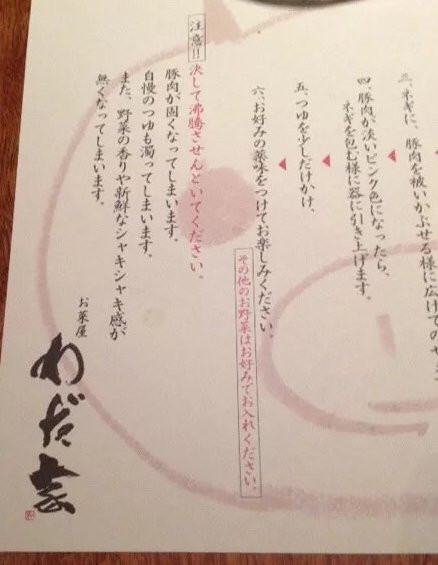 三、ネギに、豚肉を被いかぶせる様に広げて
四、豚肉が淡いピンク色になったら、
ネギを包む様に器に引き上げます。
五、つゆを少しだけかけ、
六、お好みの薬味をつけてお楽しみください。
その他のお野菜はお好みでお入れください。
注意!! 決して沸騰させんといてください。
豚肉が固くなってしまいます。
自慢のつゆも濁ってしまいます。
また、野菜の香りや新鮮なシャキシャキ感が
無くなってしまいます。
お菜屋
わだ家